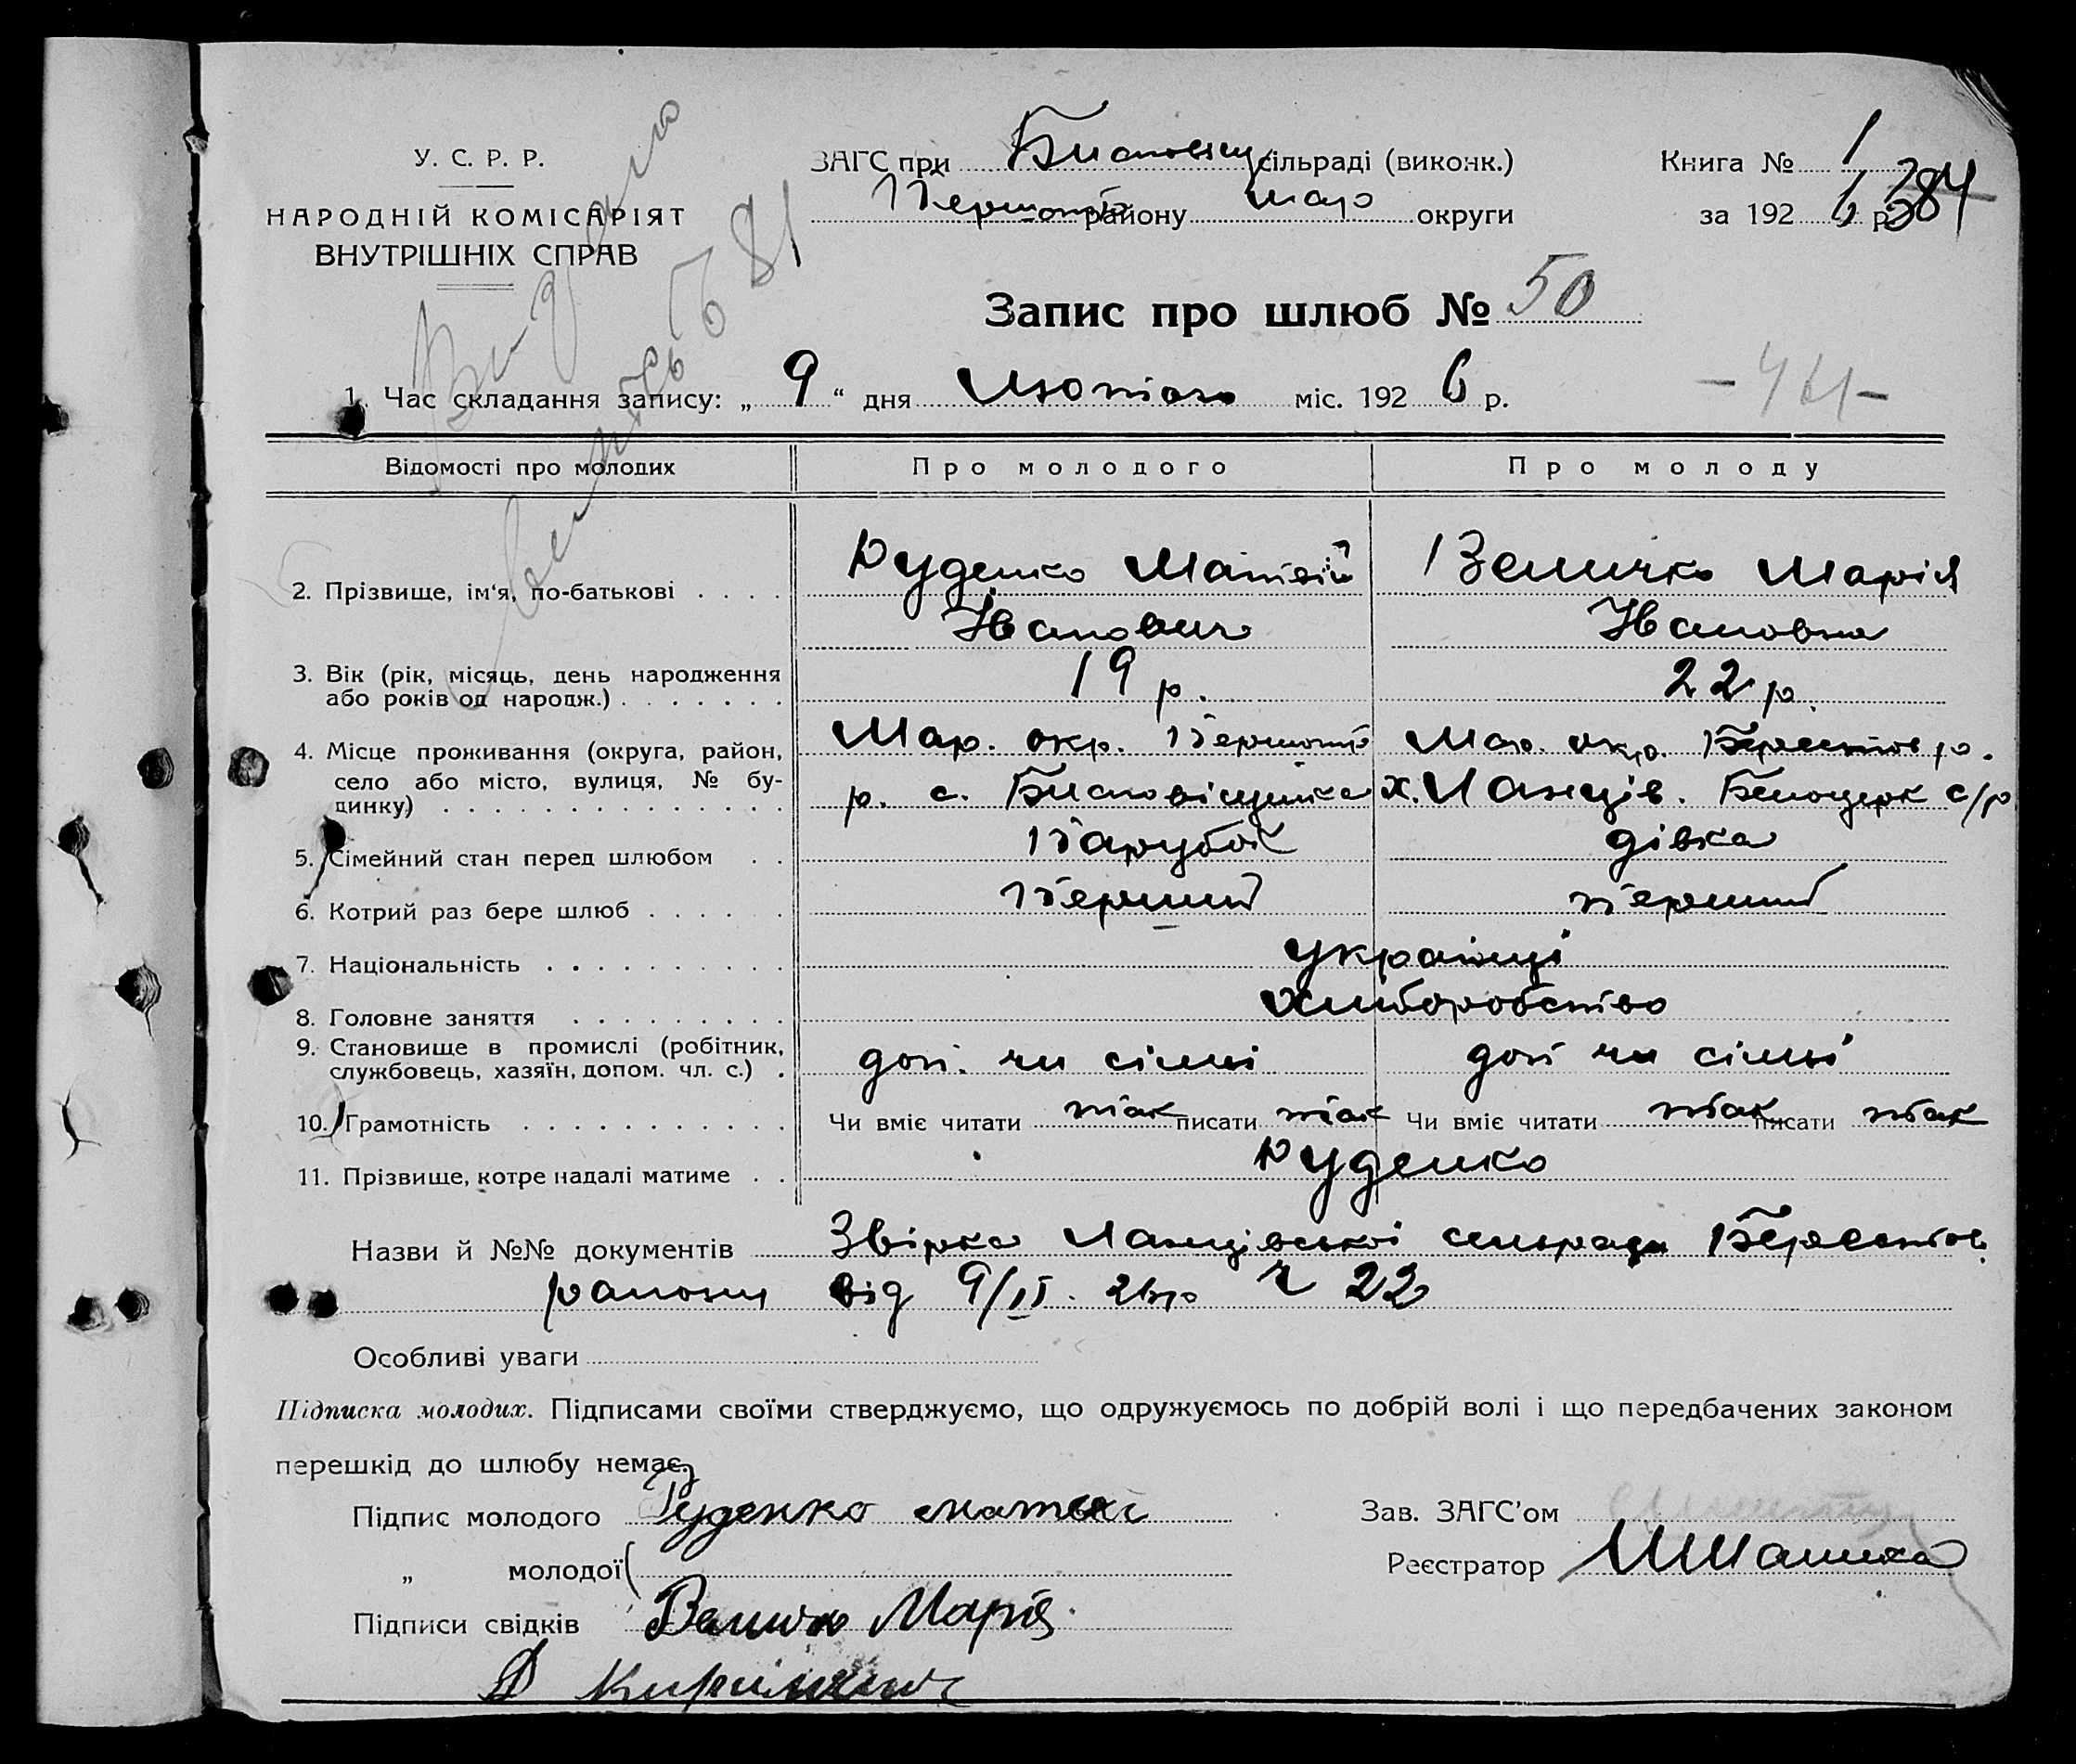 У. С. Р. Р.
НАРОДНІЙ КОМІСАРІЯТ
ВНУТРІШНІХ СПРАВ
ЗАГС при сільраді (виконк.)
району Мар округи
Книга № 1
за 192 6 р. 384
Видано
81
Запис про шлюб № 50
1. Час складання запису: „ 9 “ дня Лютого міс. 192 6 р.
Відомості про молодих
Про молодого
Про молоду
2. Прізвище, ім'я, по-батькові . . . .
Руденко Матвій
Іванович
Величко Марія
Івановна
3. Вік (рік, місяць, день народження
або років од народж.) . . . . . . .
19 р.
22 р.
4. Місце проживання (округа, район,
село або місто, вулиця, № бу-
динку) . . . . . . . . . . . . . .
Мар. окр.
р. с.
Мар. окр. Берестов р.
х. Ланців. Білоцерк с/р
5. Сімейний стан перед шлюбом . .
Парубок
дівка
6. Котрий раз бере шлюб . . . . . .
Перший
перший
7. Національність . . . . . . . . . .
українці
8. Головне заняття . . . . . . . . .
хліборобство
9. Становище в промислі (робітник,
службовець, хазяїн, допом. чл. с.) .
доп. чл сімьі
доп чл сімьі
10. Грамотність . . . . . . . . . . .
Чи вміє читати так писати так
Чи вміє читати так писати так
11. Прізвище, котре надалі матиме . .
Руденко
Назви й №№ документів Звірка Ланцівської сельради Берестов.
району від 9/II. 26 р № 22
Особливі уваги
Підписка молодих. Підписами своїми стверджуємо, що одружуємось по добрій волі і що передбачених законом
перешкід до шлюбу немає.
Підпис молодого Руденко
„ молодої
Підписи свідків
Величко Марія
Зав. ЗАГС'ом
Реєстратор